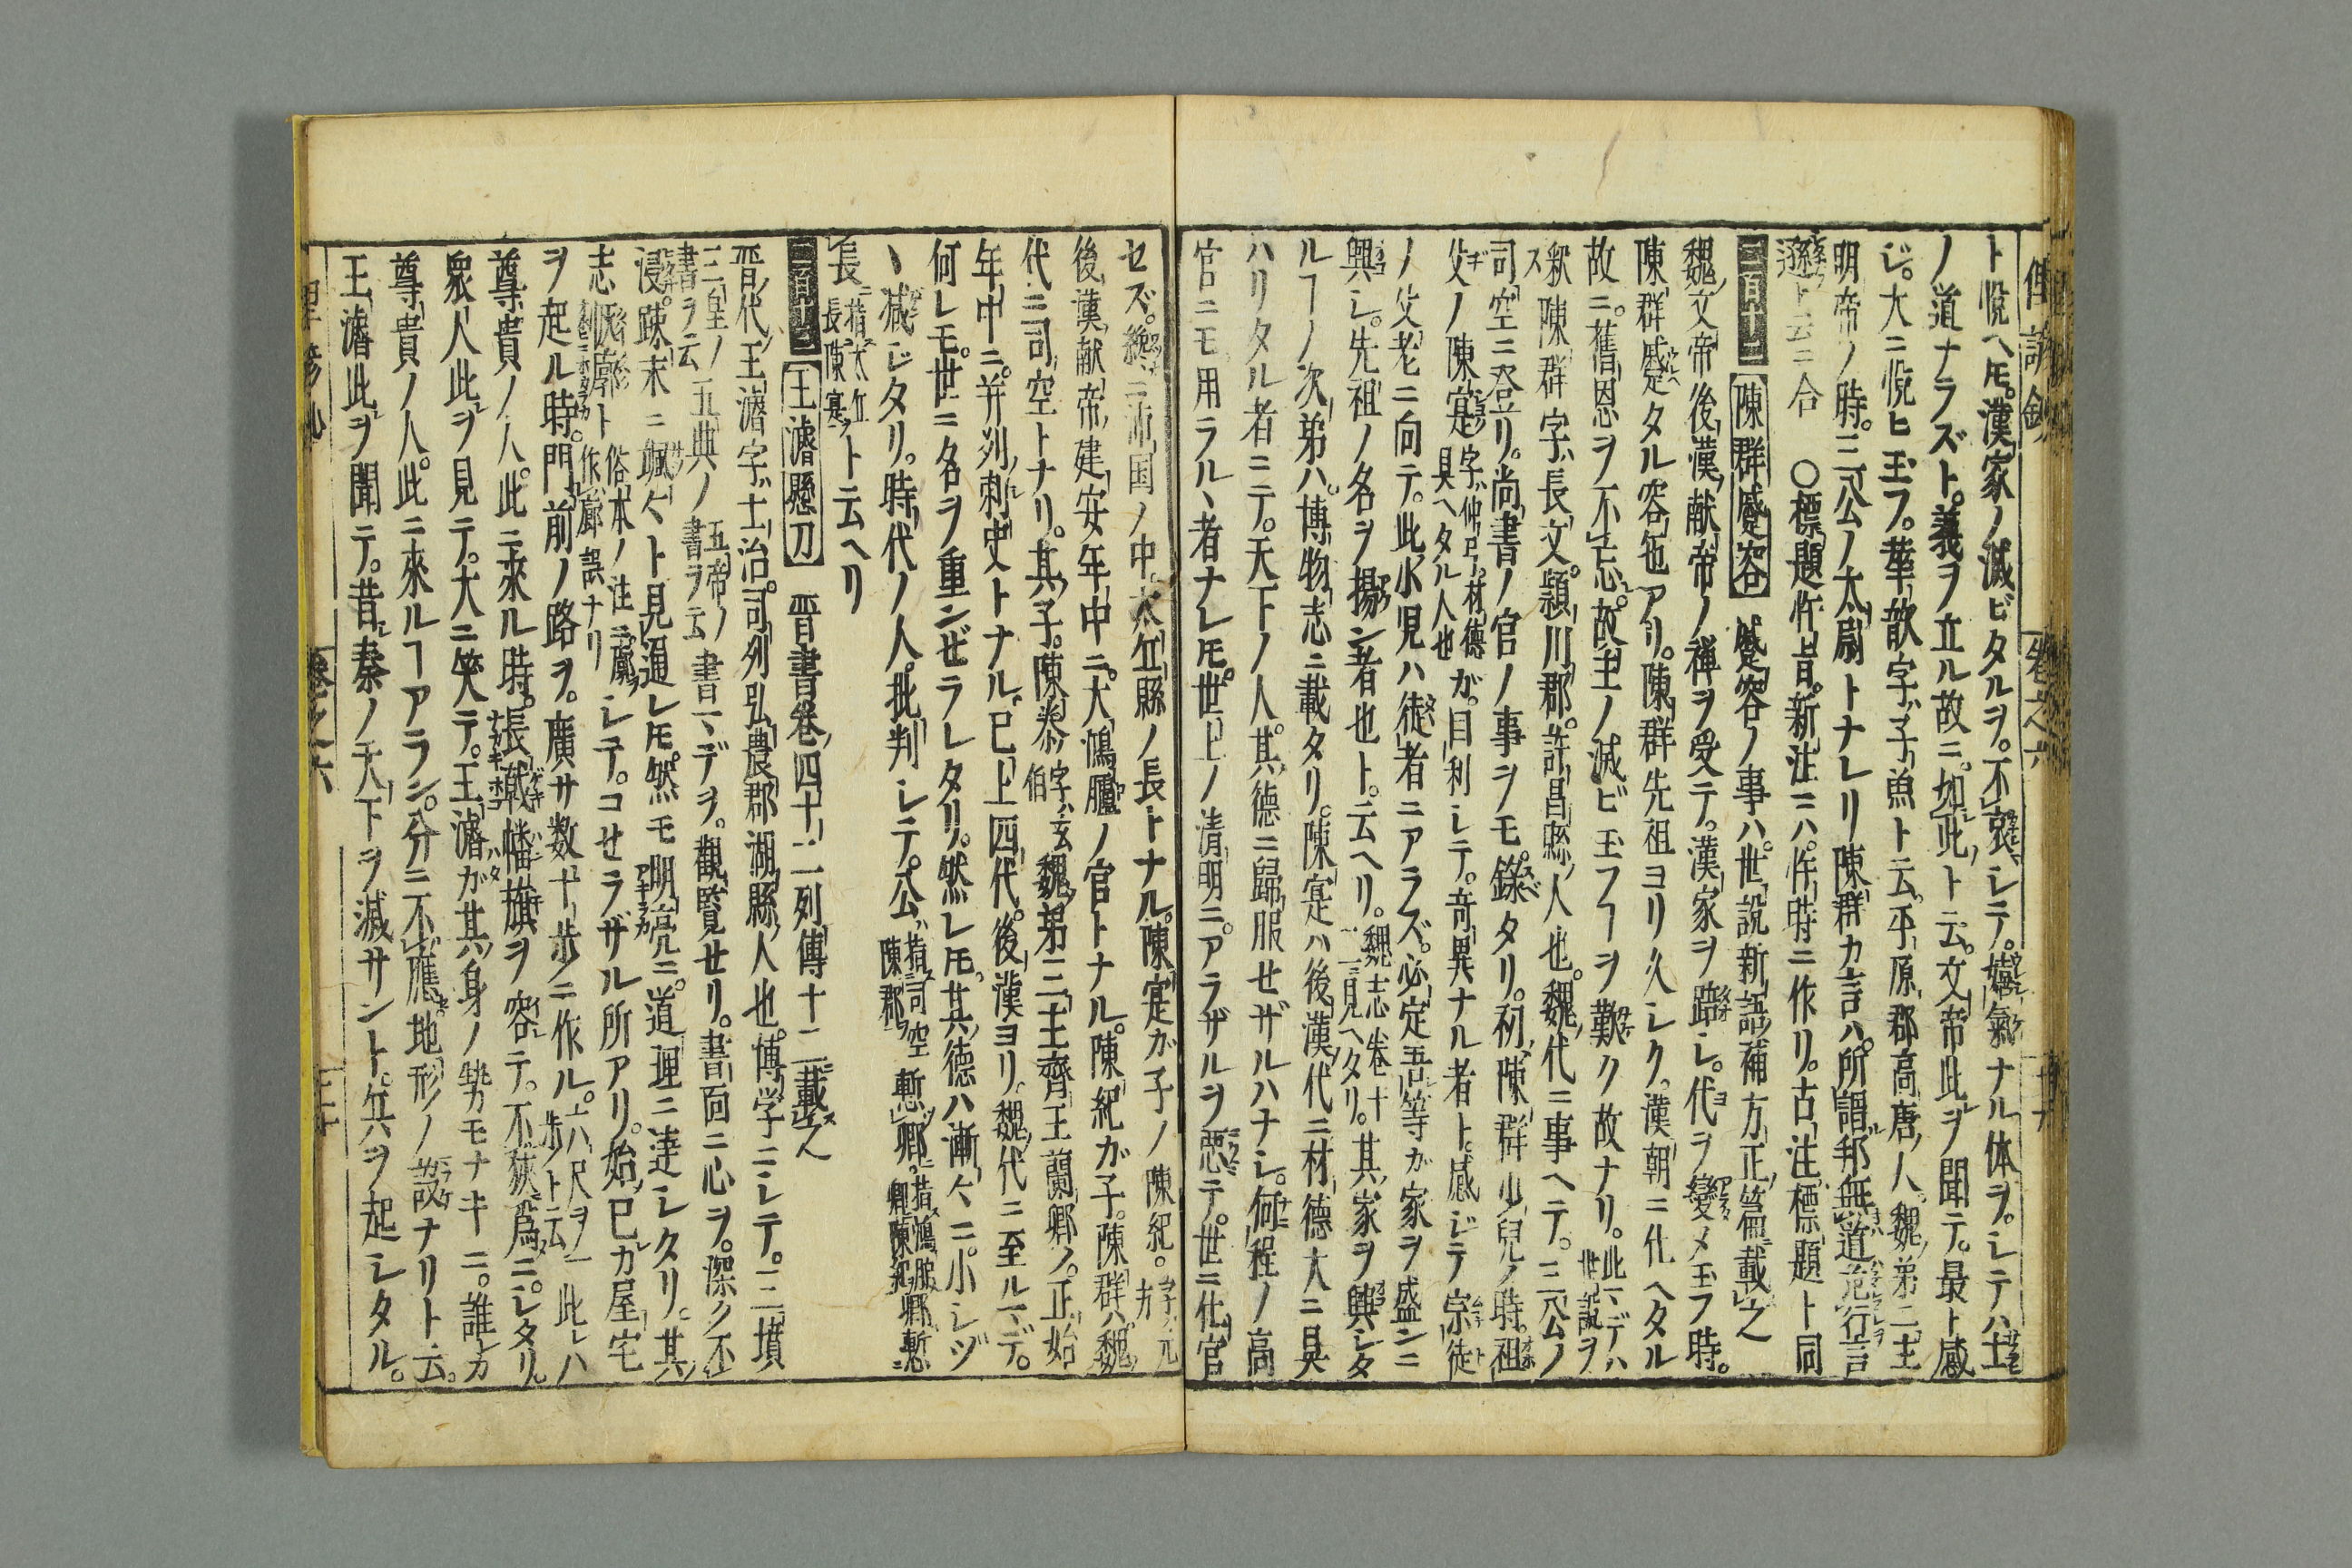 ト悦ヘ𪜈漢家ノ滅ビタルヲ。不哀シテ。嬉氣ナル体ヲ。シテハ士
ノ道ナラズト。義ヲ立ル故ニ。如此ト云。文帝此ヲ聞テ。最ト感
ジ。大ニ悦ヒ玉フ。華歆字子魚ト云。平原郡高唐人。魏第二主
明帝ノ時。三公ノ太尉トナレリ陳群カ言ハ。所謂邦無道危行言
遜ト云ニ合 〇標題忤旨。新注ニハ。忤時ニ作リ。古注標題ト同
陳群蹙容 蹙容ノ事ハ。世説新語補方正篇載之
魏文帝後漢献帝ノ禅ヲ受テ。漢家ヲ踣シ。代ヲ變メ玉フ時。
陳群蹙タル容他アリ。陳群先祖ヨリ久シク。漢朝ニ仕ヘタル
故ニ。舊恩ヲ不忘。故主ノ滅ビ玉フヿヲ歎ク故ナリ。此マデハ世説ヲ
釈ス 陳群字長文。頴川郡。許昌縣人也。魏代ニ事ヘテ。三公ノ
司空ニ登リ。尚書ノ官ノ事ヲモ。錄タリ。初陳群少兒ノ時。祖
父ノ陳寔字仲弓。材德具ヘタル人也ガ。目利シテ。竒異ナル者ト。感ジテ宗徒
ノ父老ニ向テ。此小児ハ徒者ニアラズ。必定吾等ガ家ヲ盛ンニ
興シ。先祖ノ名ヲ揚ン者也ト。云ヘリ。魏志卷十ニ見ヘタリ。其家ヲ興シタ
ルヿノ次第ハ。博物志ニ載タリ。陳寔ハ後漢代ニ材德大ニ具
ハリタル者ニテ。天下ノ人。其德ニ歸服セザルハナシ。何程ノ高
官ニモ用ラルヽ者ナレ𪜈。世上ノ清明ニ。アラザルヲ惡テ。世ニ仕官
セズ。纔ニ沛国ノ中太丘縣ノ長トナル。陳寔ガ子ノ陳紀。字ハ元方
後漢献帝建安年中ニ。大鴻臚ノ官トナル。陳紀ガ子。陳群ハ魏
代ニ司空トナリ。其子。陳泰字玄伯魏第三主齊王蘭卿ノ。正始
年中ニ。并刕刺史トナル。巳上四代。後漢ヨリ。魏代ニ至ルマデ。
何レモ。世ニ名ヲ重ンゼラレタリ。然レ𪜈。其德ハ漸〻ニ。小シヅ
ヽ減ジタリ。時代ノ人。批判シテ。公指司空陳郡慙卿指鴻臚卿陳紀卿慙
長指太丘長陳寔ト云ヘリ
王濬懸刀 晋書卷四十二列傳十二載之
晋代王濬字士治。司列弘農郡湖縣人也。博学ニシテ。三墳
三皇ノ書ヲ云五典ノ五帝ノ書ヲ云書マデヲ。觀覧セリ。書面ニ心ヲ。深ク不
浸。踈末ニ颯〻ト見通レ𪜈。然モ明亮ニ。道理ニ達シタリ。其
志恢廓ト俗本ノ注ニ廓作廊誤ナリシテ。コセラザル所アリ。始巳カ屋宅
ヲ起ル時。門前ノ路ヲ。廣サ数十歩ニ作ル。六尺ヲ一歩ト云此レハ
尊貴ノ人。此ニ來ル時。長戟幡旗ヲ容テ。不狹爲ニ。シタリ。
衆人此ヲ見テ。大ニ笑テ。王濬ガ其身ノ勢モナキニ。誰カ
尊貴ノ人。此ニ來ルヿアラン。分ニ不應地形ノ設ナリト云。
王濬此ヲ聞テ。昔秦ノ天下ヲ滅サント。兵ヲ起シタル。